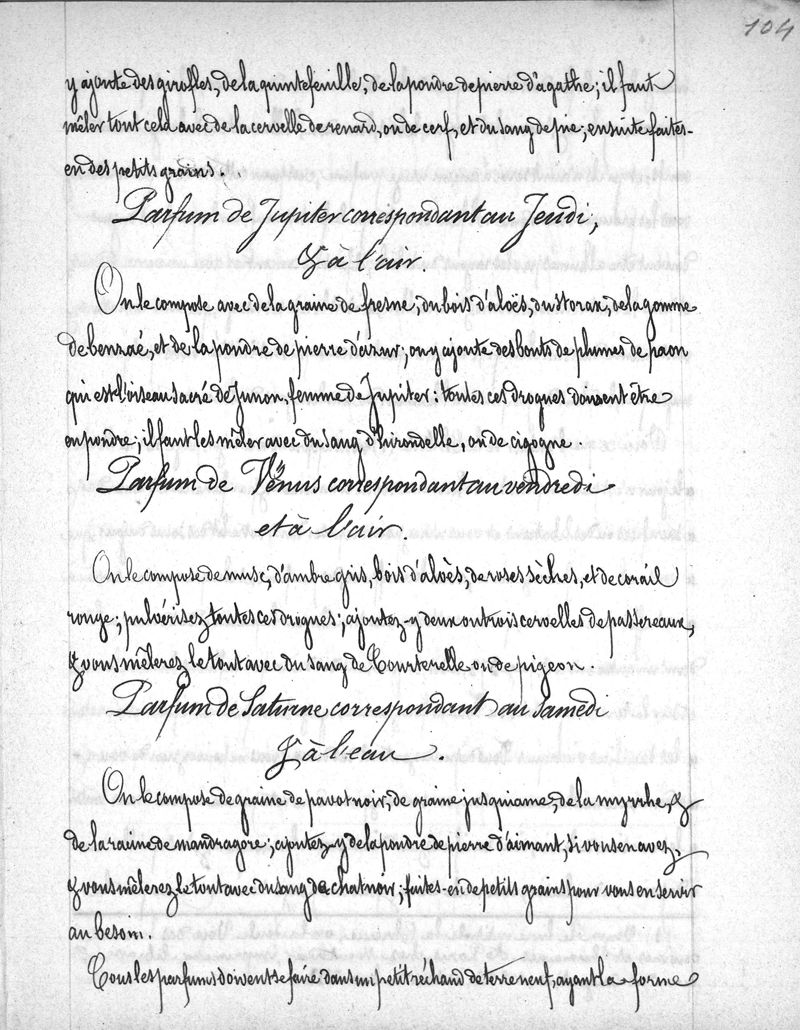 104
y ajoute des girofles, de la quintefeuille, de la poudre de pierre d'agathe; il faut
mêler tout cela avec de la cervelle de renard, ou de cerf, et du sang de pie; ensuite faites-
en des petits grains.
Parfum de Jupiter correspondant au Jeudi,
& à l'air.
On le compose avec de la graine de fresne, du bois d'aloës, du storax, de la gomme
de benzaé, et de la poudre de pierre d'azur; on y ajoute des bouts de plumes de paon
qui est l'oiseau sacré de Junon, femme de Jupiter: toutes ces drogues doivent être
en poudre; il faut les mêler avec du sang d'hirondelle, ou de cigogne.
Parfum de Vénus correspondant au vendredi
et à l'air.
On le compose de musc, d'ambre gris, bois d'aloès, de roses sèches, et de corail
rouge; pulvérisez toutes ces drogues; ajoutez-y deux ou trois cervelles de passereaux,
& vous mêlerez le tout avec du sang de Tourterelle ou de pigeon.
Parfum de Saturne correspondant au Samedi
& à l'eau.
On le compose de graine de pavot noir, de graine jusquiame, de la myrrhe, &
de la racine de mandragore; ajoutez-y de la poudre de pierre d'aimant, si vous en avez,
& vous mêlerez le tout avec du sang de chat noir; faites-en de petits grains pour vous en servir
au besoin.
Tous les parfums doivent se faire dans un petit réchaud de terre neuf, ayant la forme